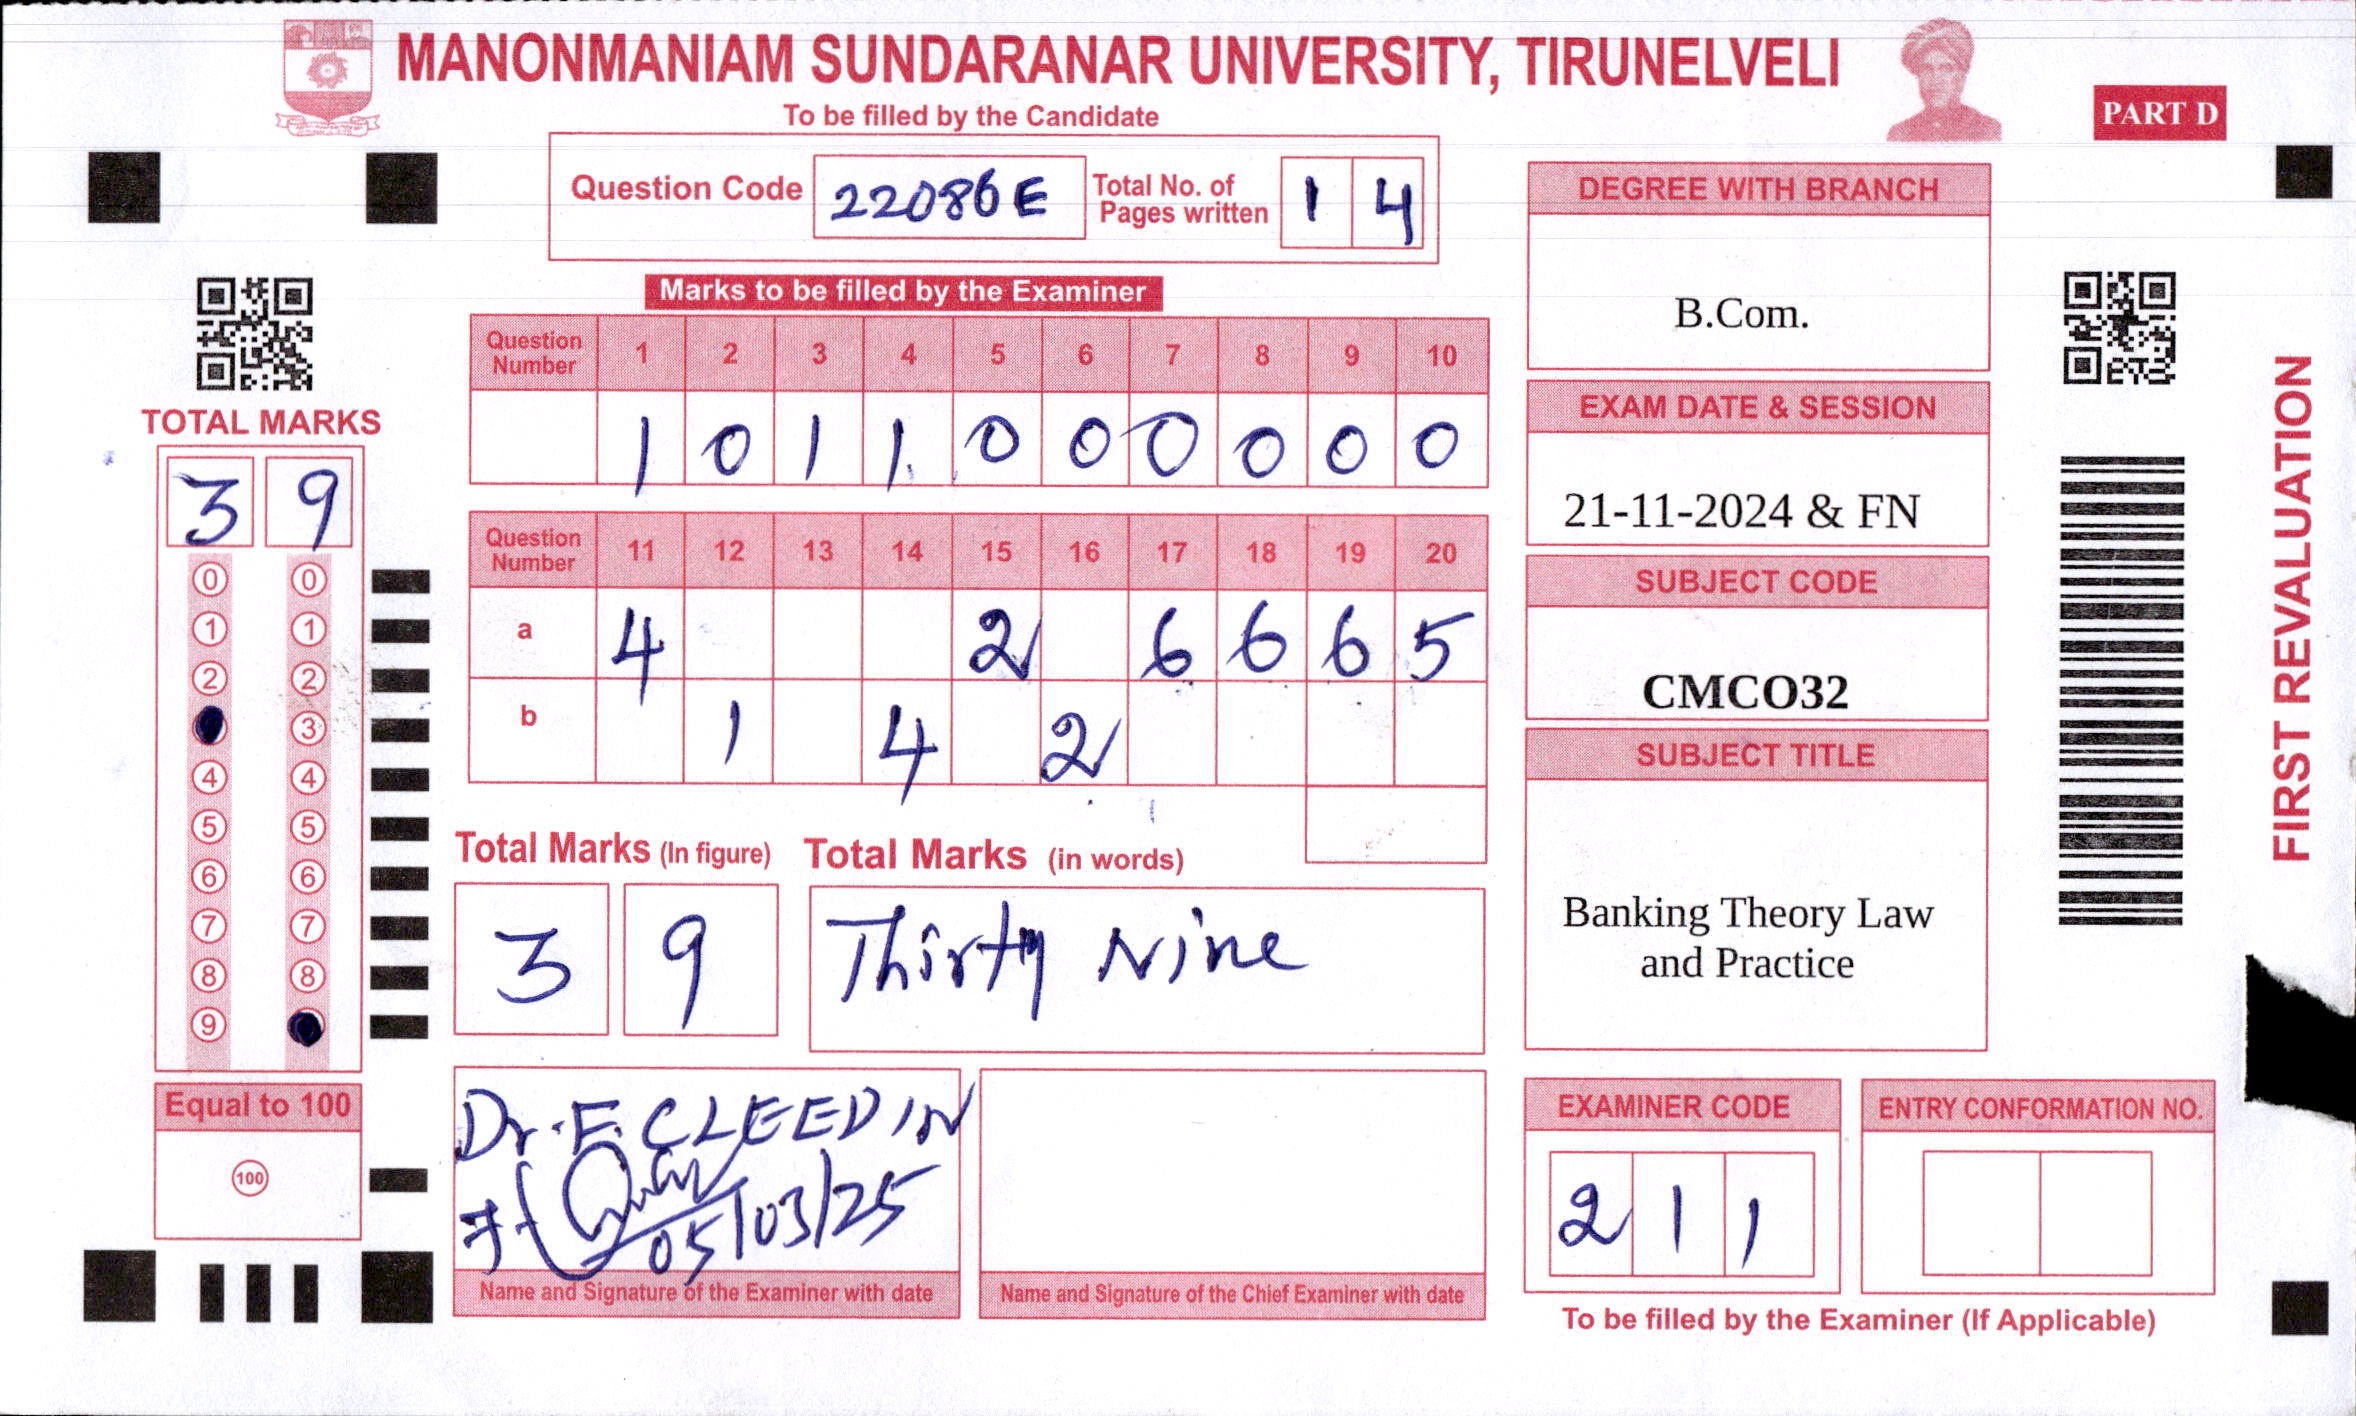 MANONMANIAM SUNDARANAR UNIVERSITY, TIRUNELVELI
To be filled by the Candidate
PART D
Question Code 22086E Total No. of Pages written 1 4
Marks to be filled by the Examiner
Question Number 1 2 3 4 5 6 7 8 9 10
1 0 1 1 0 0 0 0 0 0
Question Number 11 12 13 14 15 16 17 18 19 20
a 4 2 6 6 6 5
b 1 4 2
Total Marks (In figure) Total Marks (in words)
3 9 Thirty Nine
Dr. F. CLEEDIN
05/03/25
Name and Signature of the Examiner with date
Name and Signature of the Chief Examiner with date
TOTAL MARKS
3 9
0 0
1 1
2 2
3
4 4
5 5
6 6
7 7
8 8
9
Equal to 100
100
DEGREE WITH BRANCH
B.Com.
EXAM DATE & SESSION
21-11-2024 & FN
SUBJECT CODE
CMCO32
SUBJECT TITLE
Banking Theory Law
and Practice
EXAMINER CODE
2 1 1
ENTRY CONFORMATION NO.
To be filled by the Examiner (If Applicable)
FIRST REVALUATION